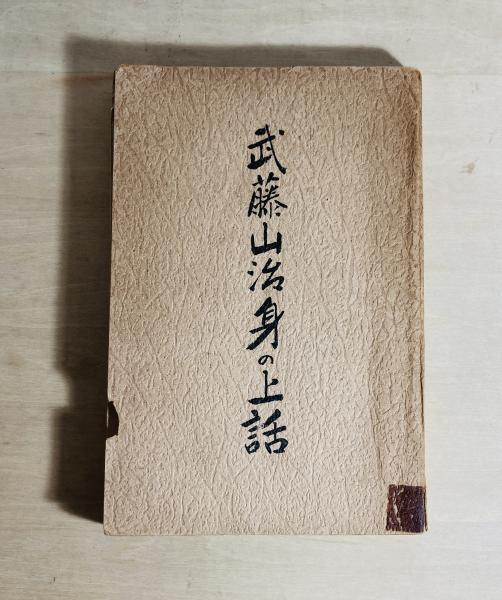 武藤山治身の上話